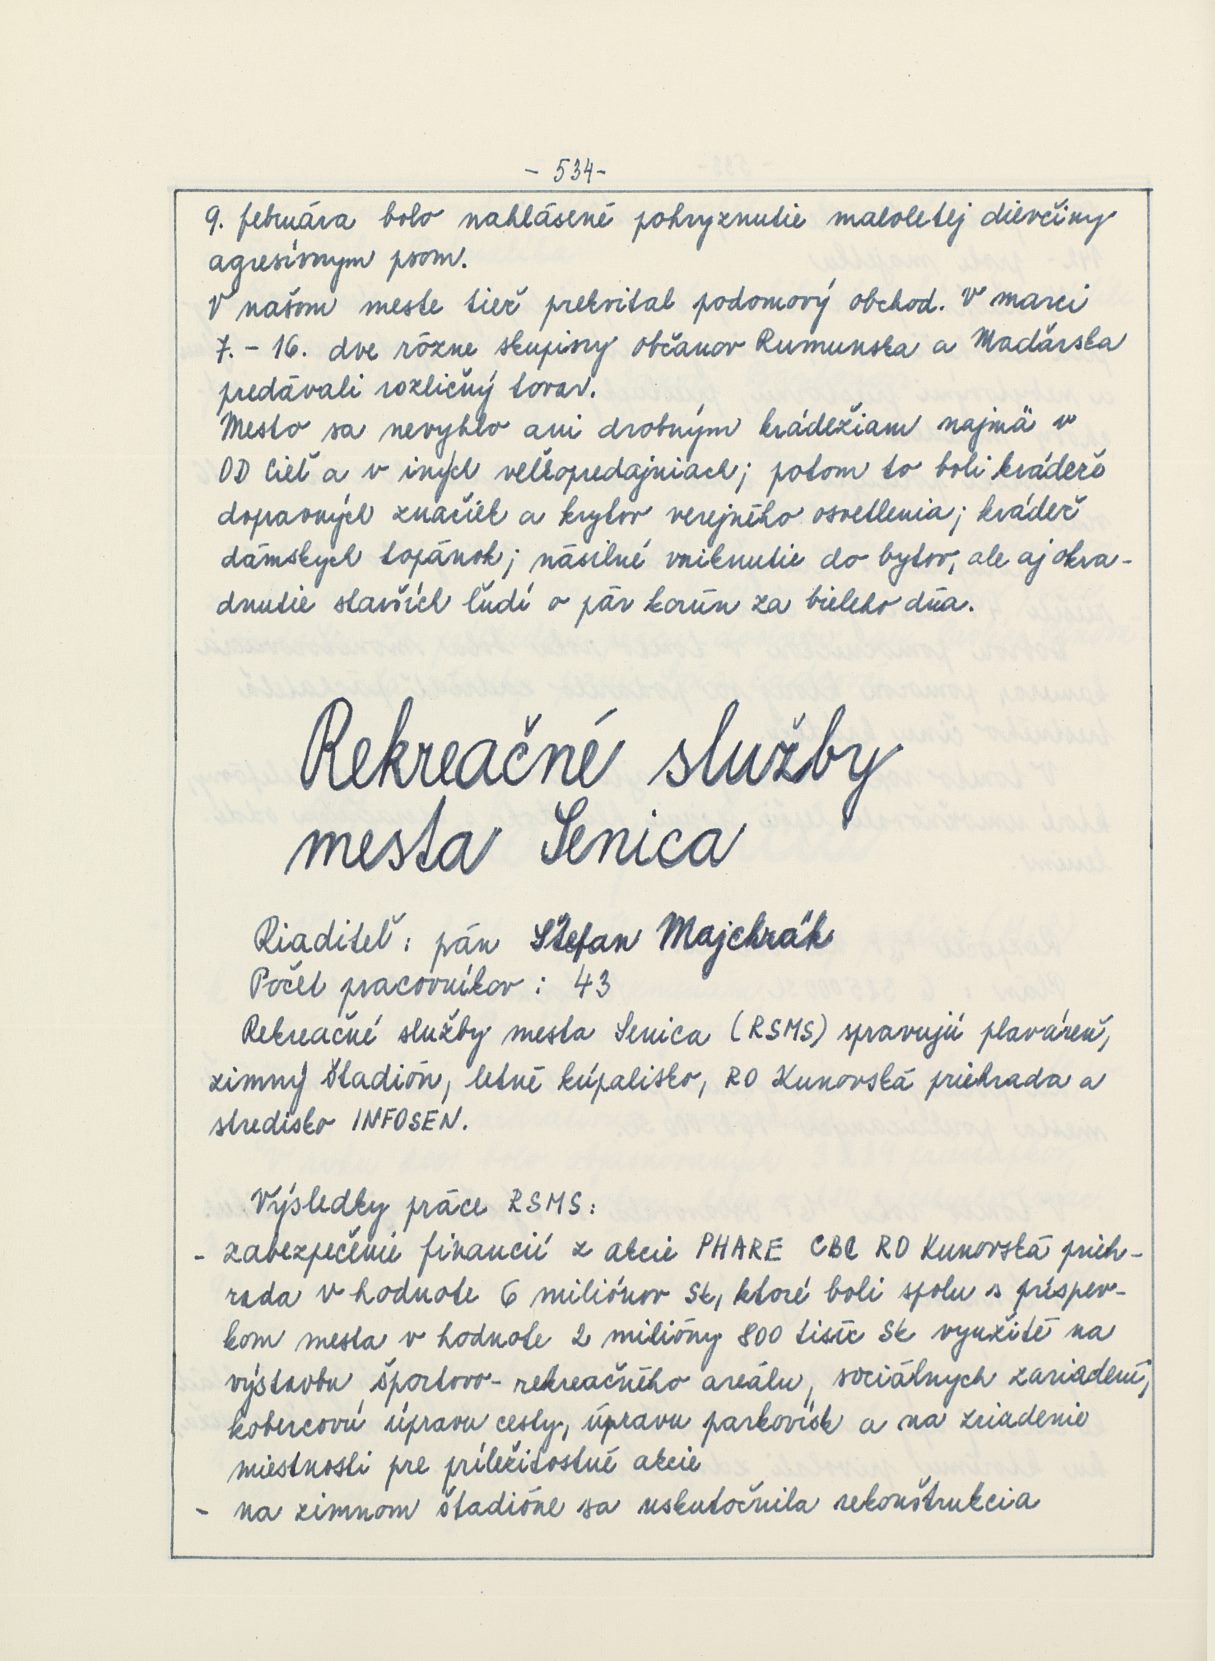 - 534 -
9. februára bolo nahlásené pohryznutie maloletej dievčiny
agresívnym psom.
V našom meste tiež prekvital podomový obchod. V marci
7. - 16. dve rôzne skupiny občanov Rumunska a Maďarska
predávali rozličný tovar.
Mesto sa nevyhlo ani drobným krádežiam najmä v
OD Cieľ a v iných veľkopredajniach; potom to boli krádeže
dopravných značiek a krytov verejného osvetlenia; krádež
dámskych topánok; násilné vniknutie do bytov, ale aj okra-
dnutie starších ľudí o pár korún za bieleho dňa.
Rekreačné služby
mesta Senica
Riaditeľ: pán Štefan Majchrák
Počet pracovníkov: 43
Rekreačné služby mesta Senica (RSMS) spravujú plaváreň,
zimný štadión, letné kúpalisko, RO Kunovská priehrada a
stredisko INFOSEN.
Výsledky práce RSMS:
- zabezpečenie financií z akcie PHARE CBC RO Kunovská prieh-
rada v hodnote 6 miliónov Sk, ktoré boli spolu s príspev-
kom mesta v hodnote 2 milióny 800 tisíc Sk využité na
výstavbu športovo- rekreačného areálu, sociálnych zariadení,
kobercovú úpravu cesty, úpravu parkovísk a na zriadenie
miestnosti pre príležitostné akcie
- na zimnom štadióne sa uskutočnila rekonštrukcia